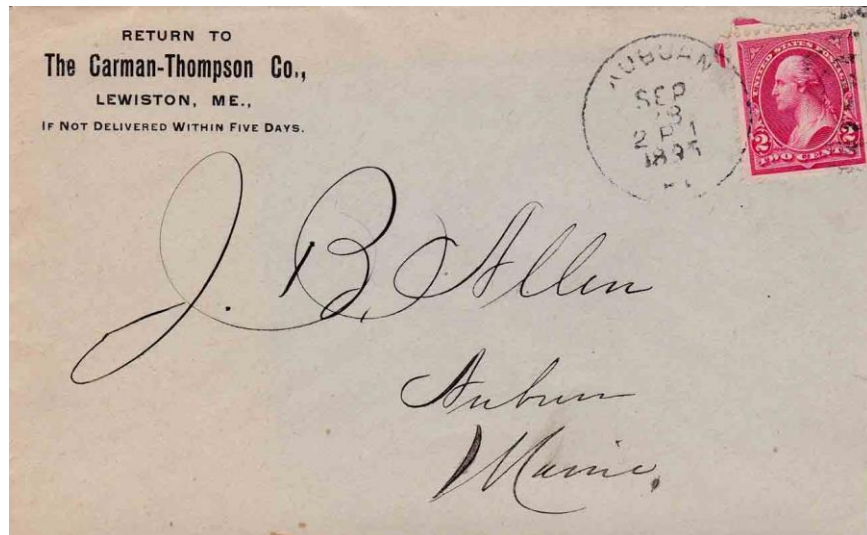 RETURN TO
The Carman-Thompson Co.,
LEWISTON, ME.,
IF NOT DELIVERED WITHIN FIVE DAYS.
AUBURN
SEP
28
2 P
1895
UNITED STATES POSTAGE
2 2
TWO CENTS
J. B. Allen
Auburn
Maine.